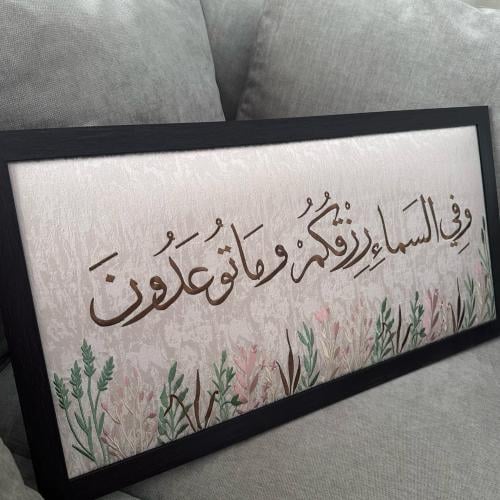 وَفِي السَمَاءِ رِزْقُكُمْ وَمَا تُوعَدُونَ